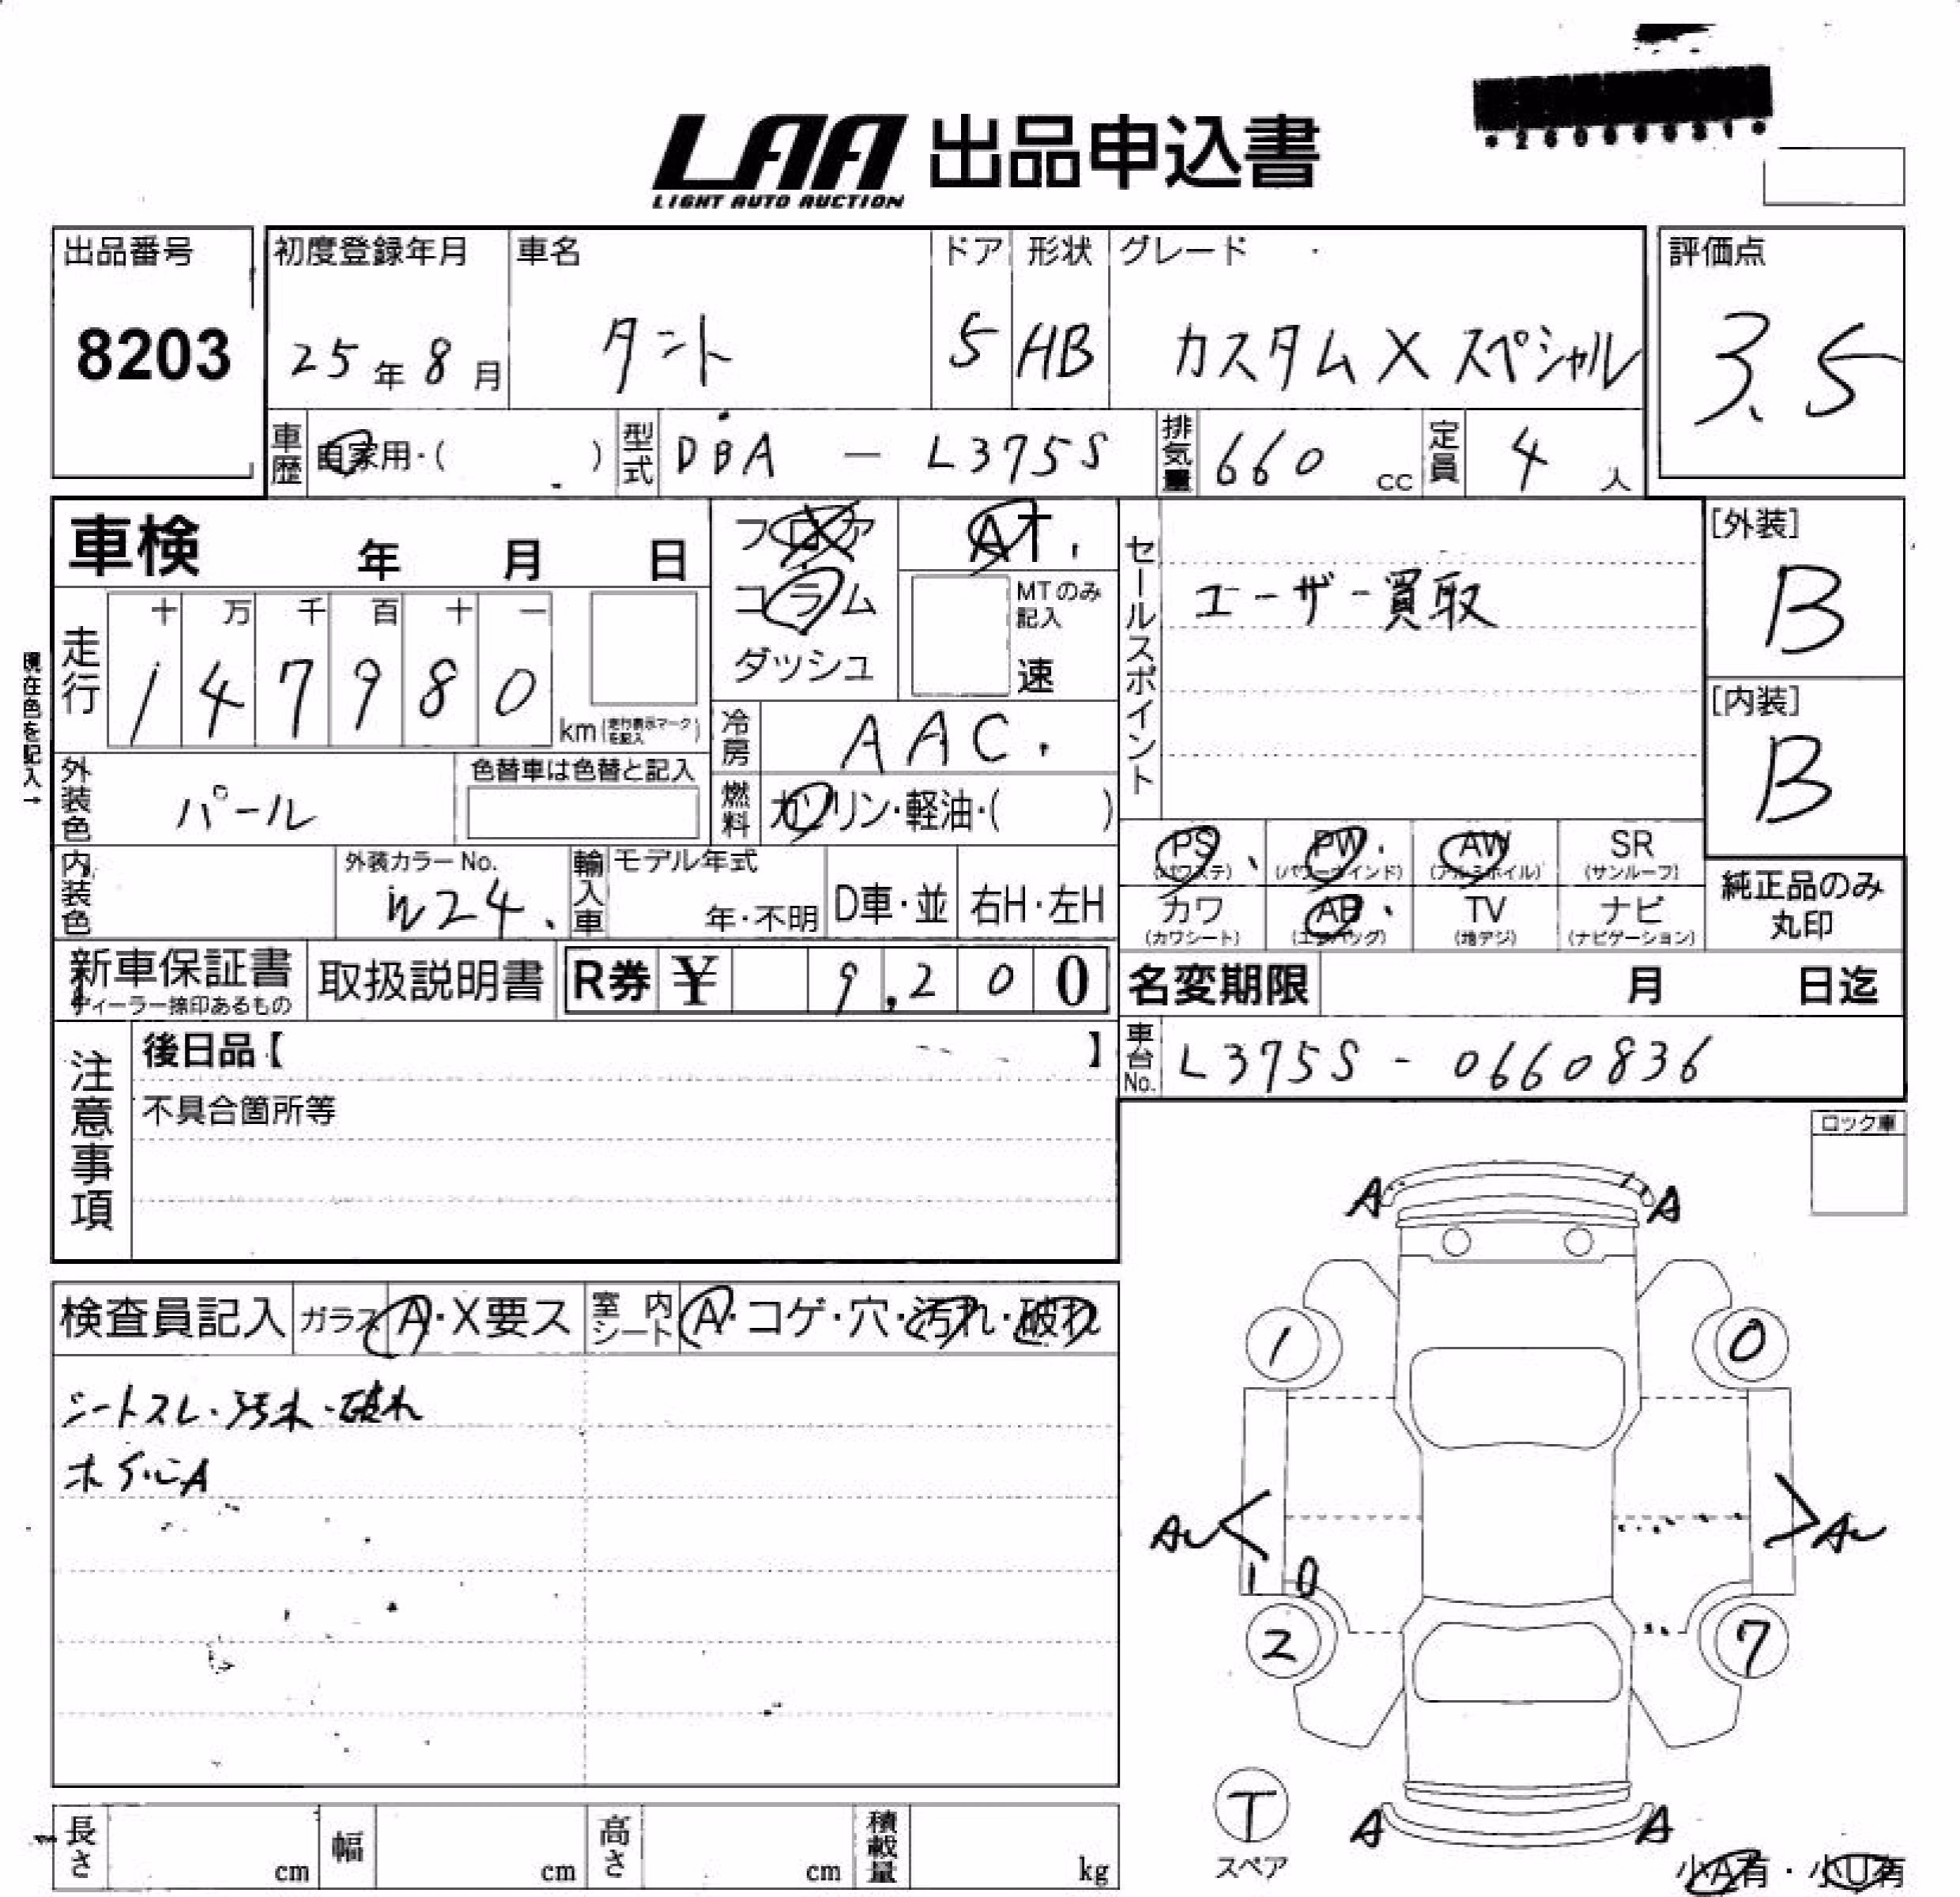 LAA 出品申込書
LIGHT AUTO AUCTION
出品番号
8203
初度登録年月
25年8月
車名
タント
ドア
5
形状
HB
グレード
カスタムXスペシャル
評価点
3.5
車歴 自家用・( )
型式 DBA - L375S
排気量 660 cc
定員 4人
車検 年 月 日
フロア
コラム
ダッシュ
AT
MTのみ記入
速
セールスポイント
ユーザー買取
[外装]
B
[内装]
B
現在色を記入→
走行
十 万 千 百 十 一
1 4 7 9 8 0
km(走行表示マークを記入)
冷房 AAC
燃料 ガソリン・軽油・( )
外装色 パール
色替車は色替と記入
内装色
外装カラーNo.
W24
輸入車
モデル年式
年・不明
D車・並
右H・左H
PS (パワステ)
PW (パワーウインド)
AW (アルミホイル)
SR (サンルーフ)
カワ (カワシート)
AB (エアバッグ)
TV (地デジ)
ナビ (ナビゲーション)
純正品のみ
丸印
新車保証書
ディーラー捺印あるもの
取扱説明書
R券 ¥ 9,200
名変期限 月 日迄
車台No. L375S - 0660836
注意事項
後日品【 】
不具合箇所等
ロック車
検査員記入
ガラス A・X要ス
室内シート A・コゲ・穴・汚れ・破れ
シートスレ・汚れ・破れ
ホイールA
A A
1 0
A A
1 0
2 7
T
スペア
A A
小A有・小U有
長さ cm
幅 cm
高さ cm
積載量 kg